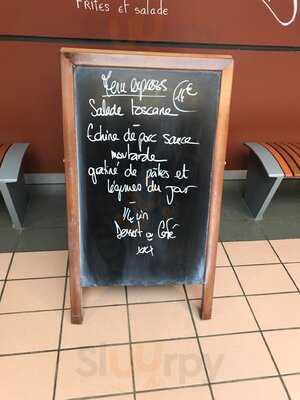 Frites et salade
Menu express
Salade toscane
Echine de porc sauce
moutarde
gratiné de pâtes et
légumes du jour
1/4 vin
Dessert ou Café
sirur